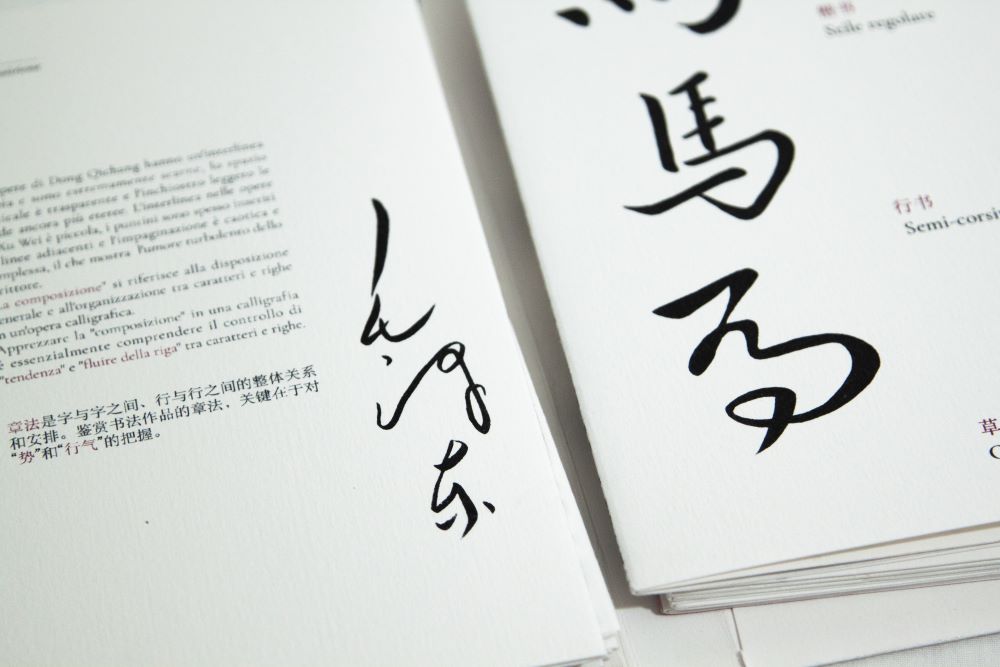 pere di Dong Qichang hanno un'interlinea
ra e sono estremamente scarne, lo spazio
icale è trasparente e l'inchiostro leggero le
de ancora più eteree. L'interlinea nelle opere
Xu Wei è piccola, i puntini sono spesso inseriti
linee adiacenti e l'impaginazione è caotica e
mplessa, il che mostra l'umore turbolento dello
rittore.
La composizione" si riferisce alla disposizione
enerale e all'organizzazione tra caratteri e righe
n un'opera calligrafica.
Apprezzare la "composizione" in una calligrafia
è essenzialmente comprendere il controllo di
"tendenza" e "fluire della riga" tra caratteri e righe.
章法是字与字之间、行与行之间的整体关系
和安排。鉴赏书法作品的章法，关键在于对
“势”和“行气”的把握。
毛泽东
楷书
Stile regolare
馬
行书
Semi-corsi
馬
草